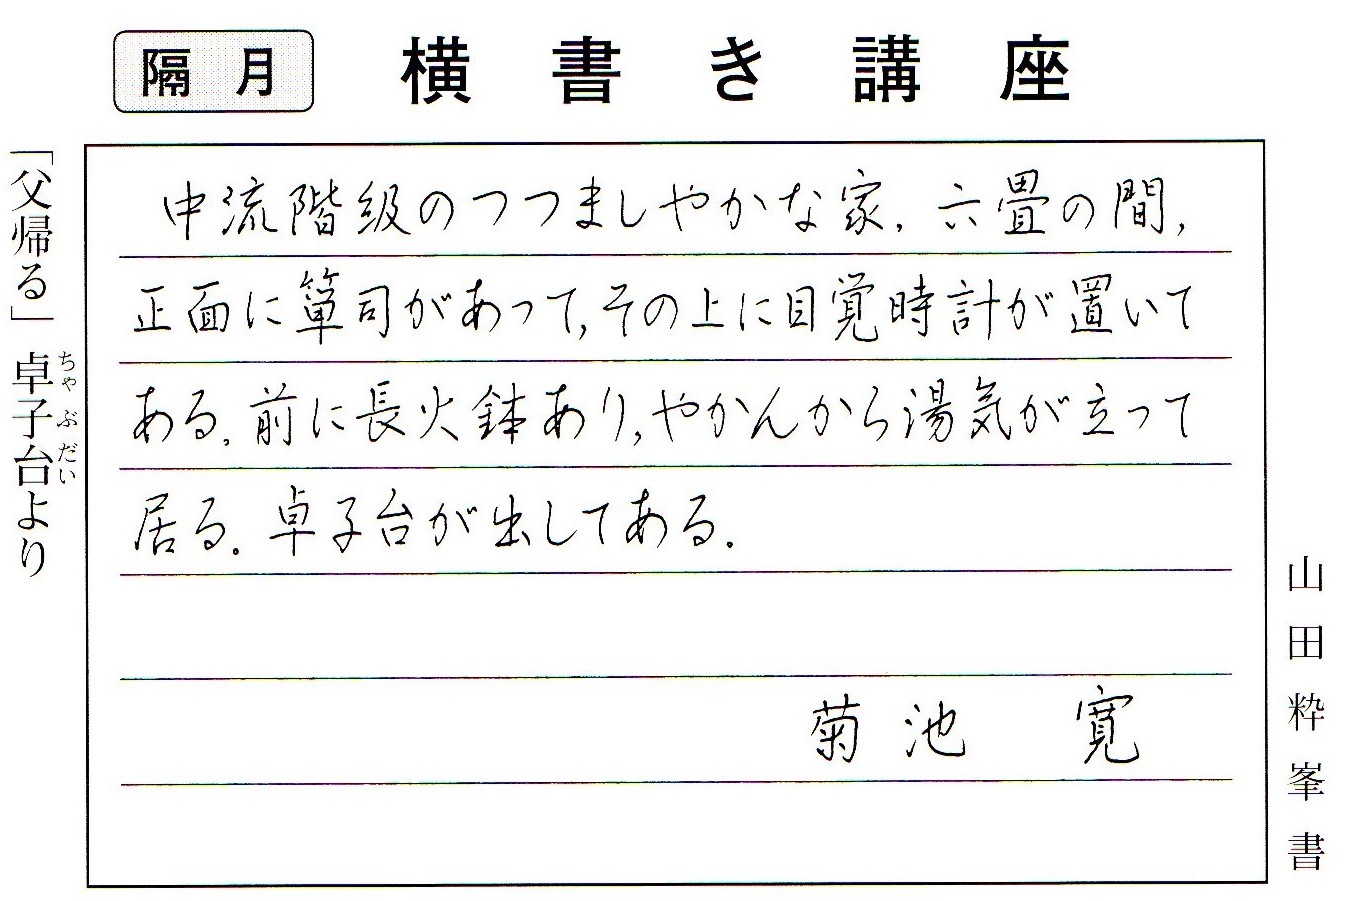 隔月 横書き講座
中流階級のつつましやかな家,六畳の間,
正面に箪司があって,その上に目覚時計が置いて
ある.前に長火鉢あり,やかんから湯気が立って
居る.卓子台が出してある.
菊池 寛
「父帰る」卓子台より
ちゃぶだい
山田粋峯書